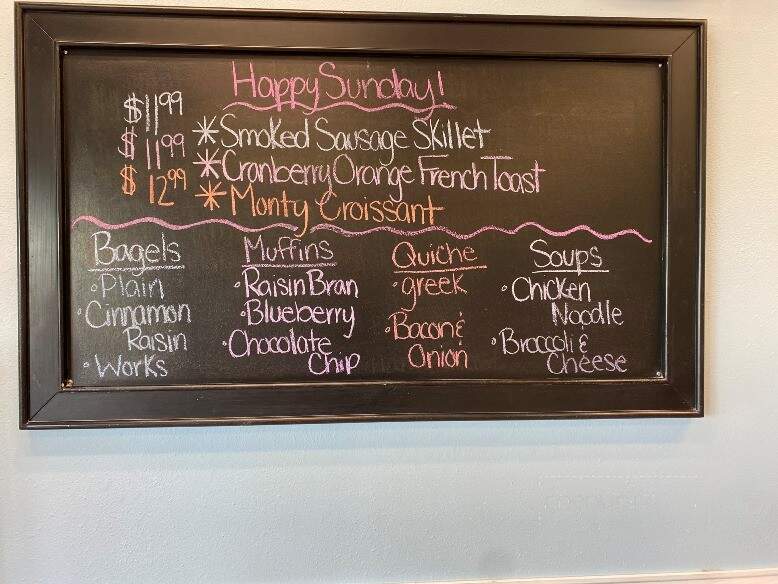 Happy Sunday!
$11.99 *Smoked Sausage Skillet
$11.99 *Cranberry Orange French Toast
$12.99 *Monty Croissant
Bagels
•Plain
•Cinnamon
Raisin
•Works
Muffins
•Raisin Bran
•Blueberry
•Chocolate
Chip
Quiche
•greek
•Bacon &
Onion
Soups
•Chicken
Noodle
•Broccoli &
Cheese